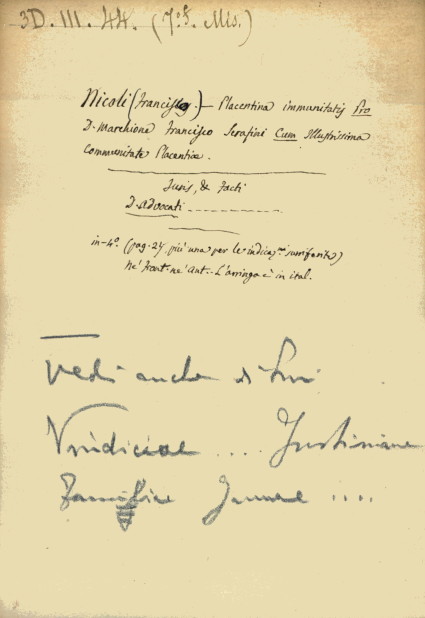 3D. III. 44. (7.° f. Mis.)
Nicoli (Francisc.) — Placentina immunitatis Pro
D. Marchione Francisco Serafini Cum Illustrissima
Communitate Placentiæ.
Juris, & facti
D. Advocati
in-4.° (pag. 27, più una per le indicaz.ni surriferite)
Nè front. nè ant. L'arringa è in ital.
Vedi anche di lui
Vindiciae .... Justiniane
Familiae Januae ....